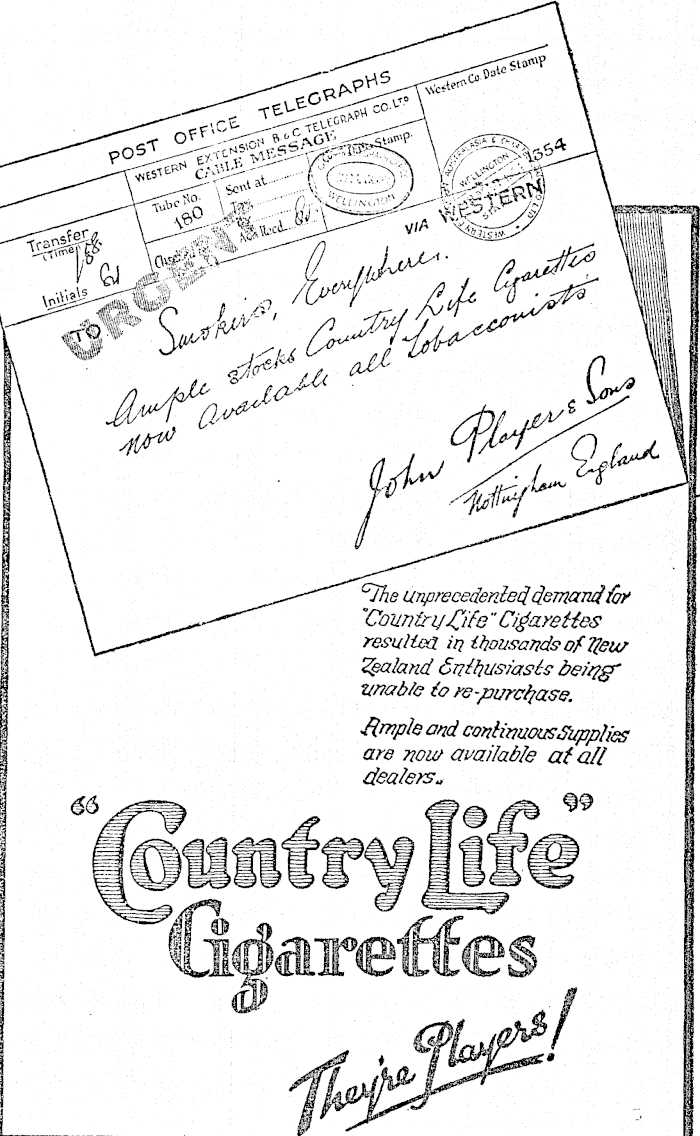 POST OFFICE TELEGRAPHS
WESTERN EXTENSION B&C TELEGRAPH CO. LTD
CABLE MESSAGE
Western Co. Date Stamp
Transfer
(Time)
Initials
Tube No.
180
Sent at
Stamp.
WELLINGTON
WELLINGTON
1354
VIA WESTERN
URGENT
TO
Smokers, Everywhere.
Ample stocks Country Life Cigarettes
now available all Tobacconists
John Player & Sons
Nottingham England
The unprecedented demand for
"Country Life" Cigarettes
resulted in thousands of New
Zealand Enthusiasts being
unable to re-purchase.
Ample and continuous Supplies
are now available at all
dealers..
"Country Life"
Cigarettes
They're Players!